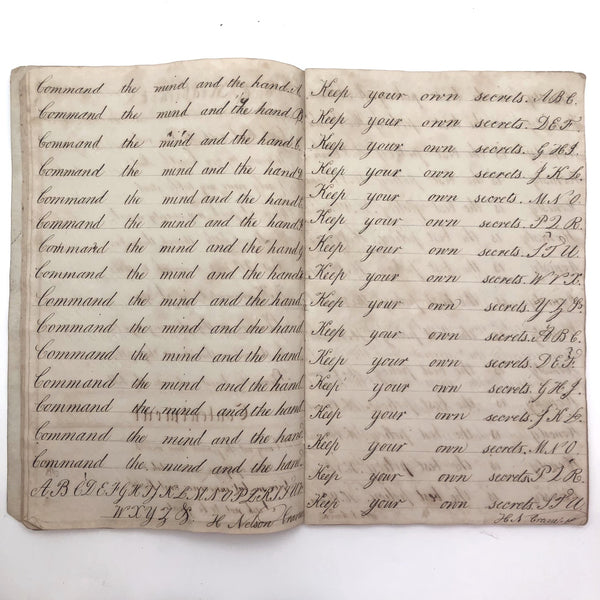 Command the mind and the hand. A
Command the mind and the hand. B
Command the mind and the hand. C
Command the mind and the hand.
Command the mind and the hand.
Command the mind and the hand.
Command the mind and the hand. G
Command the mind and the hand.
Command the mind and the hand
Command the mind and the hand
Command the mind and the hand
Command the mind and the hand
Command the mind and the hand
Command the mind and the hand
Command the mind and the hand
A B C D E F G H I J K L M N O P Q R S T U V
W X Y Z &. H Nelson
Keep your own secrets. A B C.
Keep your own secrets. D E F.
Keep your own secrets. G H I.
Keep your own secrets. J K L.
Keep your own secrets. M N O.
Keep your own secrets. P Q R.
Keep your own secrets. S T U.
Keep your own secrets. W V X.
Keep your own secrets. Y Z &.
Keep your own secrets. A B C.
Keep your own secrets. D E F.
Keep your own secrets. G H I.
Keep your own secrets. J K L.
Keep your own secrets. M N O.
Keep your own secrets. P Q R.
Keep your own secrets. S T U
H. N.